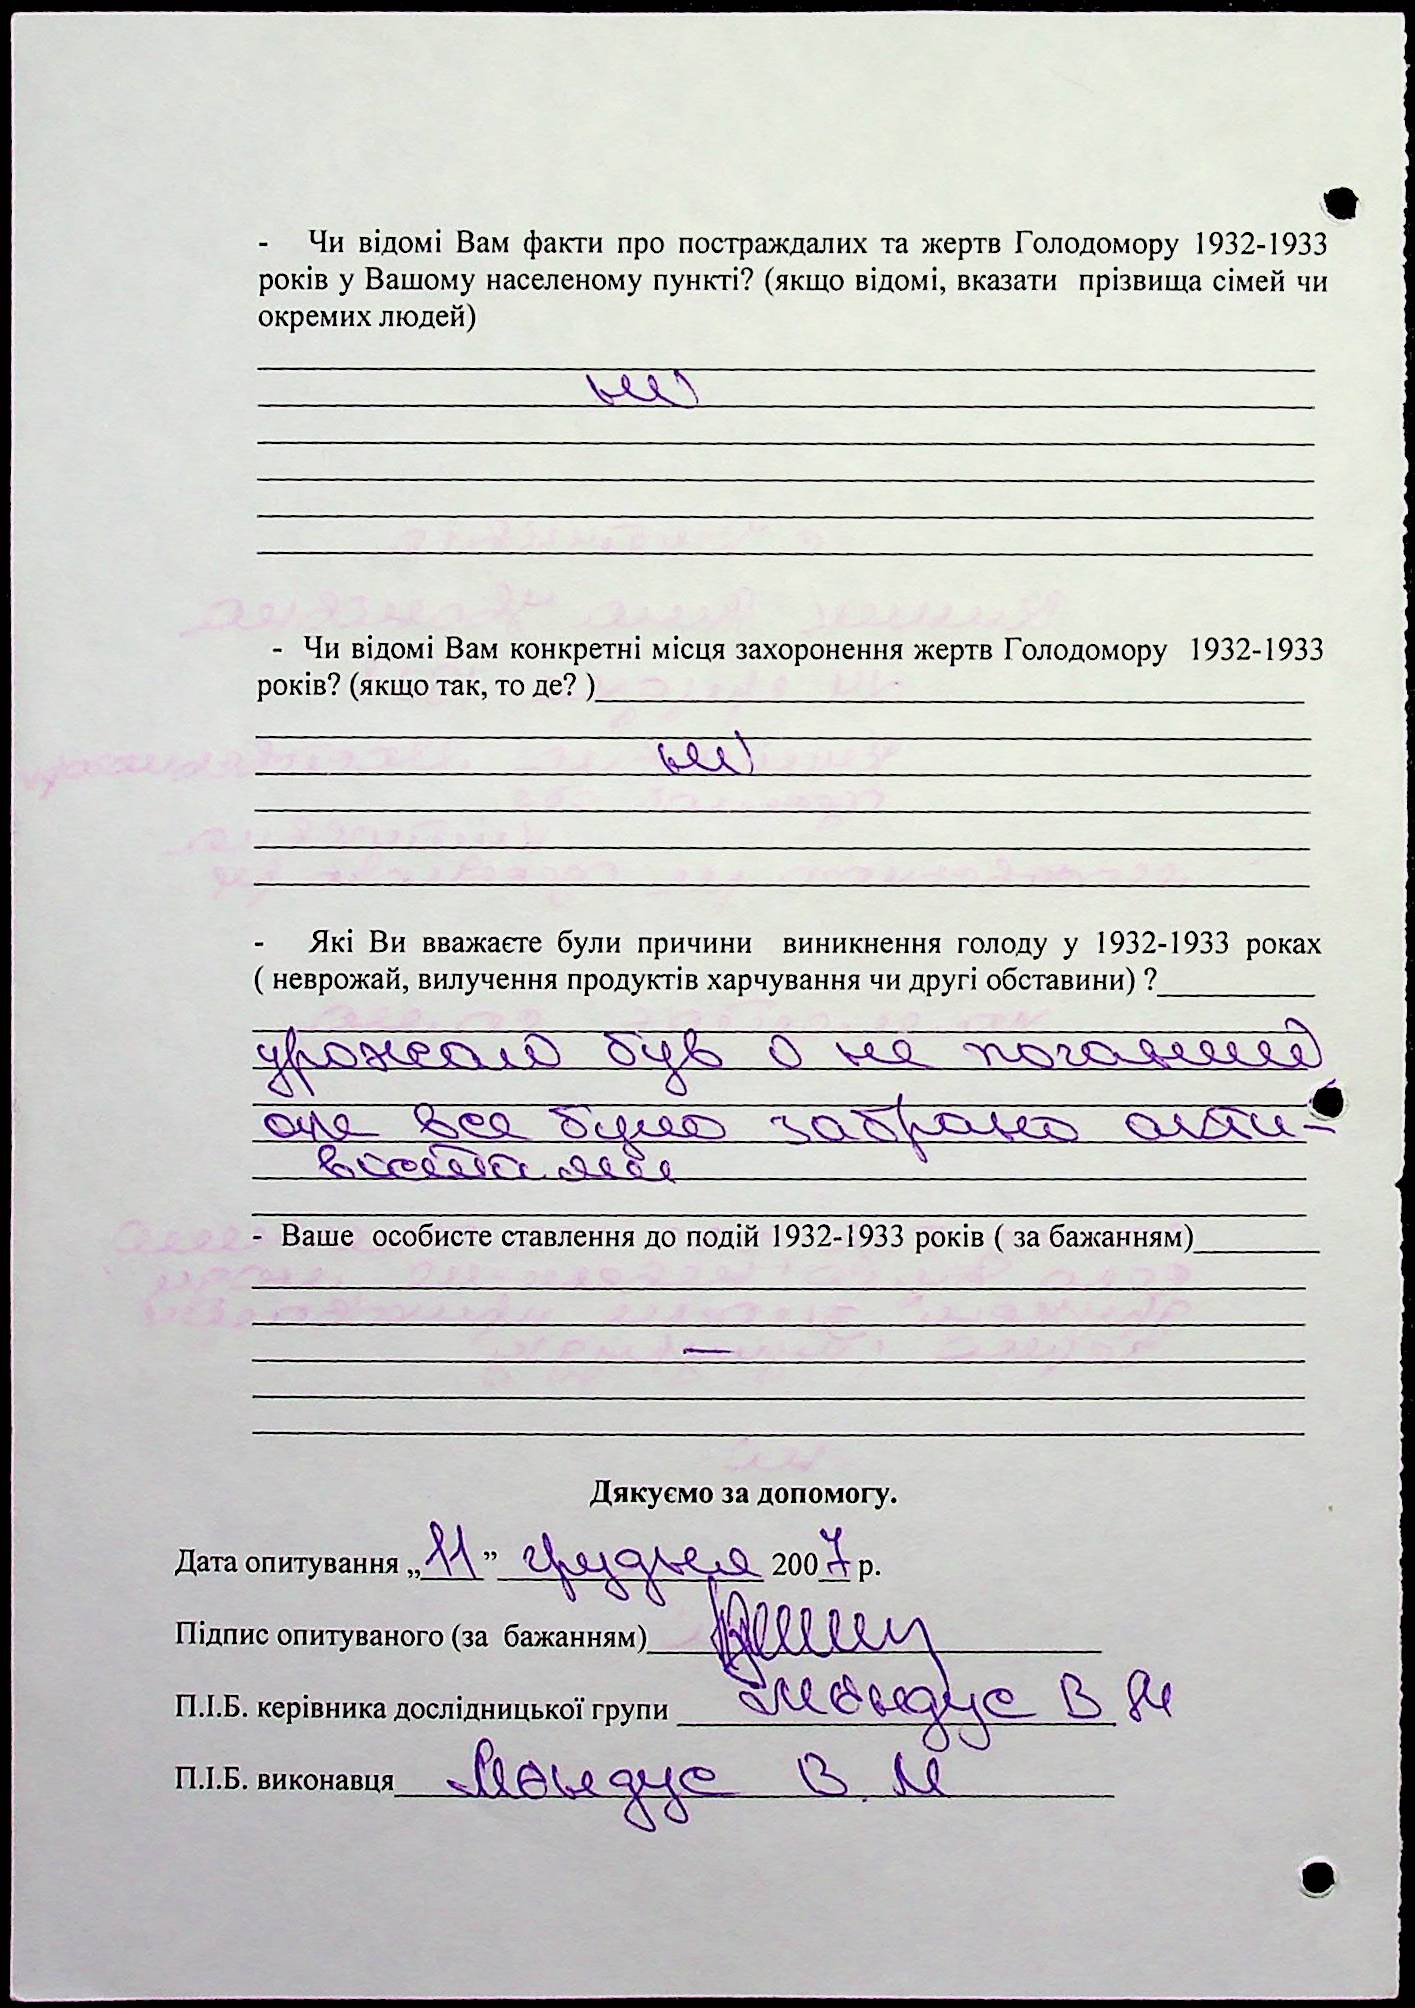 - Чи відомі Вам факти про постраждалих та жертв Голодомору 1932-1933
років у Вашому населеному пункті? (якщо відомі, вказати прізвища сімей чи
окремих людей)
ні
- Чи відомі Вам конкретні місця захоронення жертв Голодомору 1932-1933
років? (якщо так, то де? )
ні
- Які Ви вважаєте були причини виникнення голоду у 1932-1933 роках
( неврожай, вилучення продуктів харчування чи другі обставини) ?
урожай був не поганий
але все було забрано акти-
вістами
- Ваше особисте ставлення до подій 1932-1933 років ( за бажанням)
—
Дякуємо за допомогу.
Дата опитування „11” грудня 2007 р.
Підпис опитуваного (за бажанням)
П.І.Б. керівника дослідницької групи Мандус В М
П.І.Б. виконавця Мандус В. М